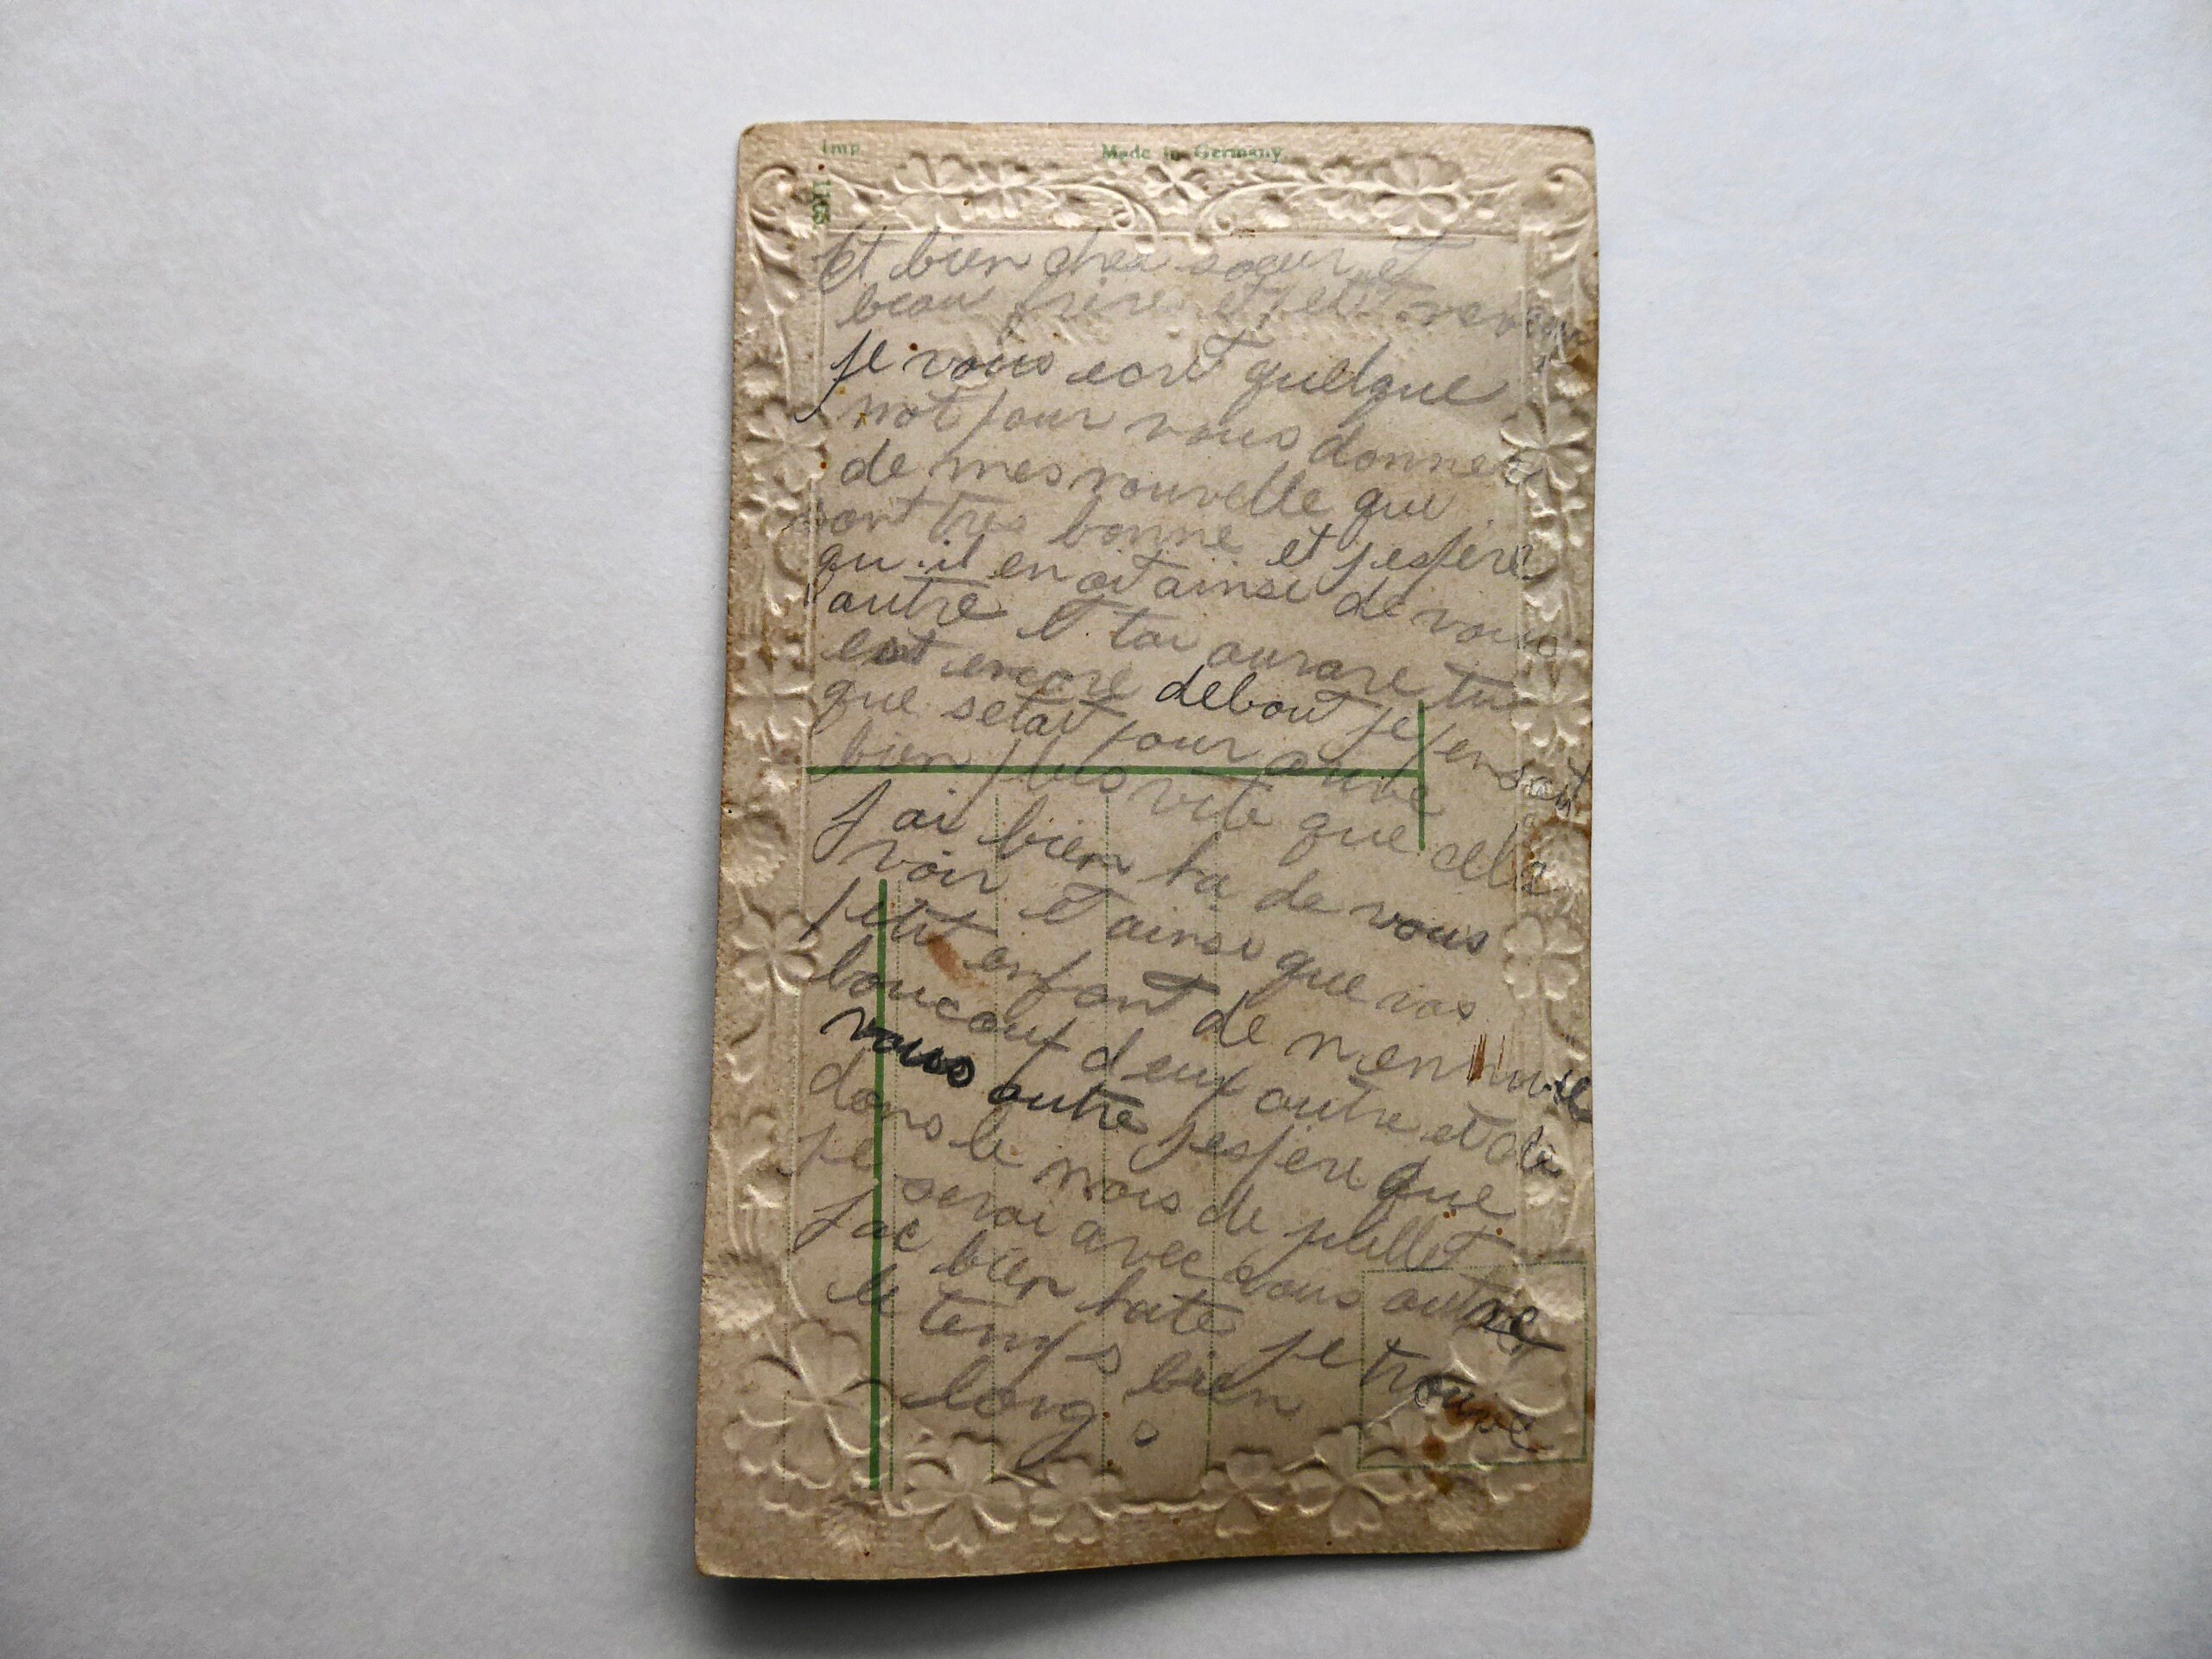 Imp.
Made in Germany
1105
Et bien cher soeur et
beau frere et petit neveau
je vous ecrit quelque
mot pour vous donner
de mes nouvelle qui
sont tres bonne et j espere
qu il en ait ainsi de vous
autre et toi aurore tu
est encore debout je pensait
que setait pour arivé
bien plus vite que cela
j ai bien ha de vous
voir et ainsi que vos
petit enfant de n ennuie
boucoup deux autre et de
vous autre j espere que
dans le mois de juillet
je serai avec vous autre
j ai bien hate je trouve
le temps bien
long